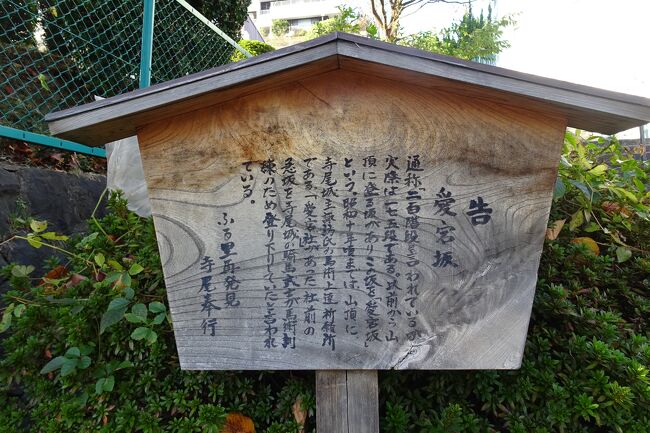 告
愛宕坂
通称“二百階段”と云われているが
実際は一七五段である。此前から山
頂に登る坂があり この坂を愛宕坂
という。昭和十年頃までは、山頂に
寺尾城主諏訪氏の馬術上達祈願所
である「愛宕社」があった 社前の
急坂を寺尾城の騎馬武士が馬術訓
練のため登り下りしていたと云われ
ている。
ふる里再発見
寺尾奉行